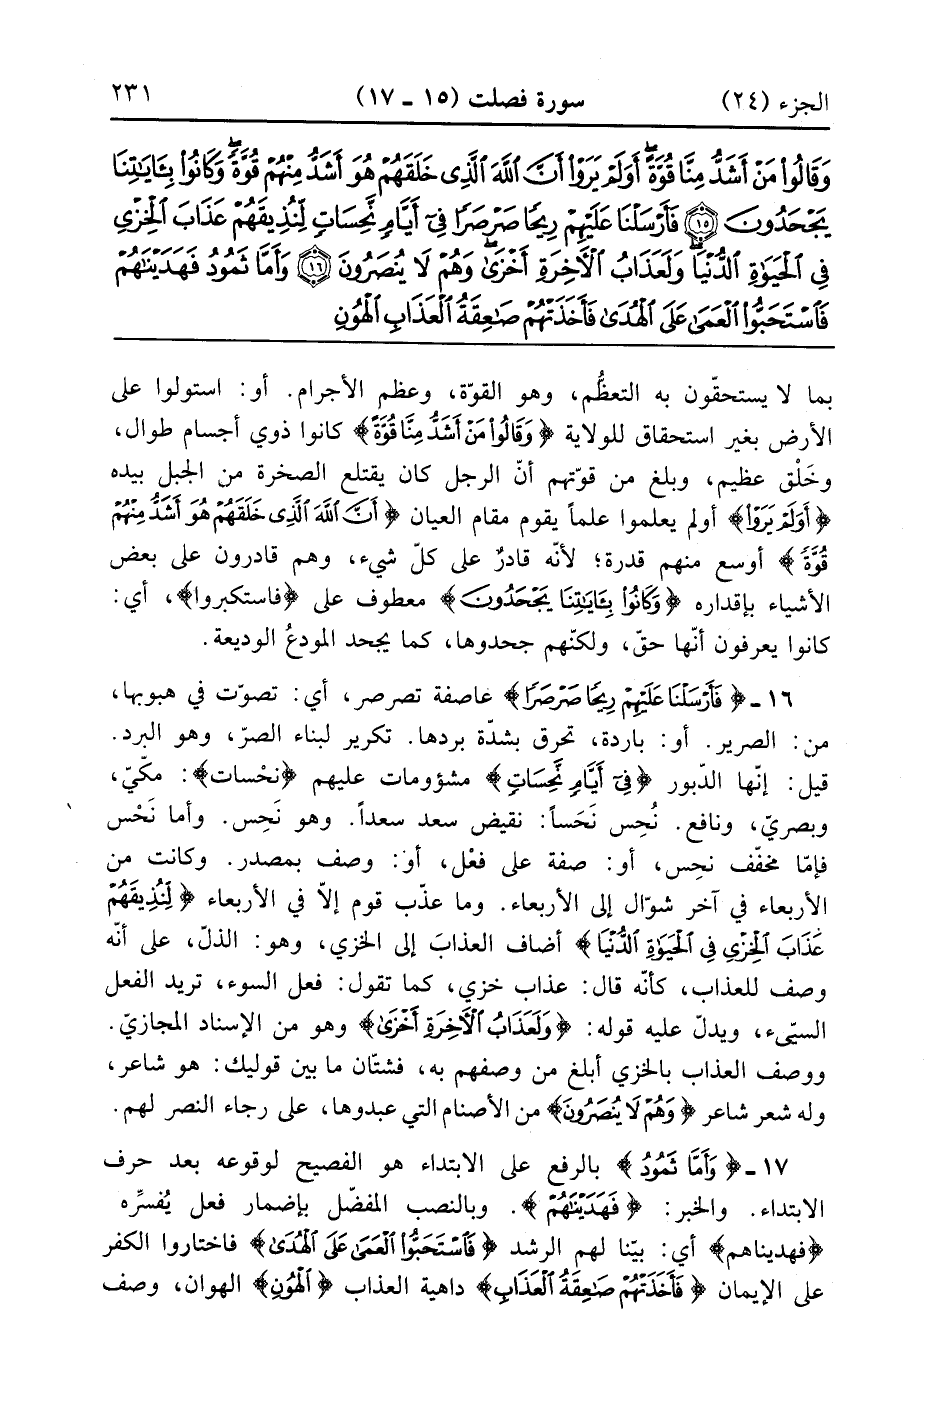 الجزء (٢٤) سورة فصلت (١٥ - ١٧) ٢٣١
وَقَالُوا۟ مَنْ أَشَدُّ مِنَّا قُوَّةً ۖ أَوَلَمْ يَرَوْا۟ أَنَّ ٱللَّهَ ٱلَّذِى خَلَقَهُمْ هُوَ أَشَدُّ مِنْهُمْ قُوَّةً ۖ وَكَانُوا۟ بِـَٔايَـٰتِنَا
يَجْحَدُونَ ﴿١٥﴾ فَأَرْسَلْنَا عَلَيْهِمْ رِيحًا صَرْصَرًا فِىٓ أَيَّامٍ نَّحِسَاتٍ لِّنُذِيقَهُمْ عَذَابَ ٱلْخِزْىِ
فِى ٱلْحَيَوٰةِ ٱلدُّنْيَا ۖ وَلَعَذَابُ ٱلْـَٔاخِرَةِ أَخْزَىٰ ۖ وَهُمْ لَا يُنصَرُونَ ﴿١٦﴾ وَأَمَّا ثَمُودُ فَهَدَيْنَـٰهُمْ
فَٱسْتَحَبُّوا۟ ٱلْعَمَىٰ عَلَى ٱلْهُدَىٰ فَأَخَذَتْهُمْ صَـٰعِقَةُ ٱلْعَذَابِ ٱلْهُونِ
بما لا يستحقّون به التعظُّم، وهو القوّة، وعظم الأجرام. أو: استولوا على
الأرض بغير استحقاق للولاية ﴿وَقَالُوا۟ مَنْ أَشَدُّ مِنَّا قُوَّةً﴾ كانوا ذوي أجسام طوال،
وخَلْق عظيم، وبلغ من قوّتهم أنّ الرجل كان يقتلع الصخرة من الجبل بيده
﴿أَوَلَمْ يَرَوْا۟﴾ أولم يعلموا علماً يقوم مقام العيان ﴿أَنَّ ٱللَّهَ ٱلَّذِى خَلَقَهُمْ هُوَ أَشَدُّ مِنْهُمْ
قُوَّةً﴾ أوسع منهم قدرة؛ لأنّه قادرٌ على كلّ شيء، وهم قادرون على بعض
الأشياء بإقداره ﴿وَكَانُوا۟ بِـَٔايَـٰتِنَا يَجْحَدُونَ﴾ معطوف على ﴿فاستكبروا﴾، أي:
كانوا يعرفون أنّها حقّ، ولكنّهم جحدوها، كما يجحد المودعُ الوديعة.
١٦ - ﴿فَأَرْسَلْنَا عَلَيْهِمْ رِيحًا صَرْصَرًا﴾ عاصفة تصرصر، أي: تصوّت في هبوبها،
من: الصرير. أو: باردة، تحرق بشدّة بردها. تكرير لبناء الصرّ، وهو البرد.
قيل: إنّها الدّبور ﴿فِىٓ أَيَّامٍ نَّحِسَاتٍ﴾ مشؤومات عليهم ﴿نحْسات﴾: مكّيّ،
وبصريّ، ونافع. نُحِس نَحَساً: نقيض سعد سعداً. وهو نَحِس. وأما نَحْس
فإمّا مخفّف نحِس، أو: صفة على فعْل، أو: وصف بمصدر. وكانت من
الأربعاء في آخر شوّال إلى الأربعاء. وما عذّب قوم إلاّ في الأربعاء ﴿لِّنُذِيقَهُمْ
عَذَابَ ٱلْخِزْىِ فِى ٱلْحَيَوٰةِ ٱلدُّنْيَا﴾ أضاف العذابَ إلى الخزي، وهو: الذلّ، على أنّه
وصف للعذاب، كأنّه قال: عذاب خزي، كما تقول: فعل السوء، تريد الفعل
السيّىء، ويدلّ عليه قوله: ﴿وَلَعَذَابُ ٱلْـَٔاخِرَةِ أَخْزَىٰ﴾ وهو من الإسناد المجازيّ.
ووصف العذاب بالخزي أبلغ من وصفهم به، فشتّان ما بين قوليك: هو شاعر،
وله شعر شاعر ﴿وَهُمْ لَا يُنصَرُونَ﴾ من الأصنام التي عبدوها، على رجاء النصر لهم.
١٧ - ﴿وَأَمَّا ثَمُودُ﴾ بالرفع على الابتداء هو الفصيح لوقوعه بعد حرف
الابتداء. والخبر: ﴿فَهَدَيْنَـٰهُمْ﴾. وبالنصب المفضّل بإضمار فعل يُفسِّره
﴿فهديناهم﴾ أي: بيّنا لهم الرشد ﴿فَٱسْتَحَبُّوا۟ ٱلْعَمَىٰ عَلَى ٱلْهُدَىٰ﴾ فاختاروا الكفر
على الإيمان ﴿فَأَخَذَتْهُمْ صَـٰعِقَةُ ٱلْعَذَابِ﴾ داهية العذاب ﴿ٱلْهُونِ﴾ الهوان، وصف